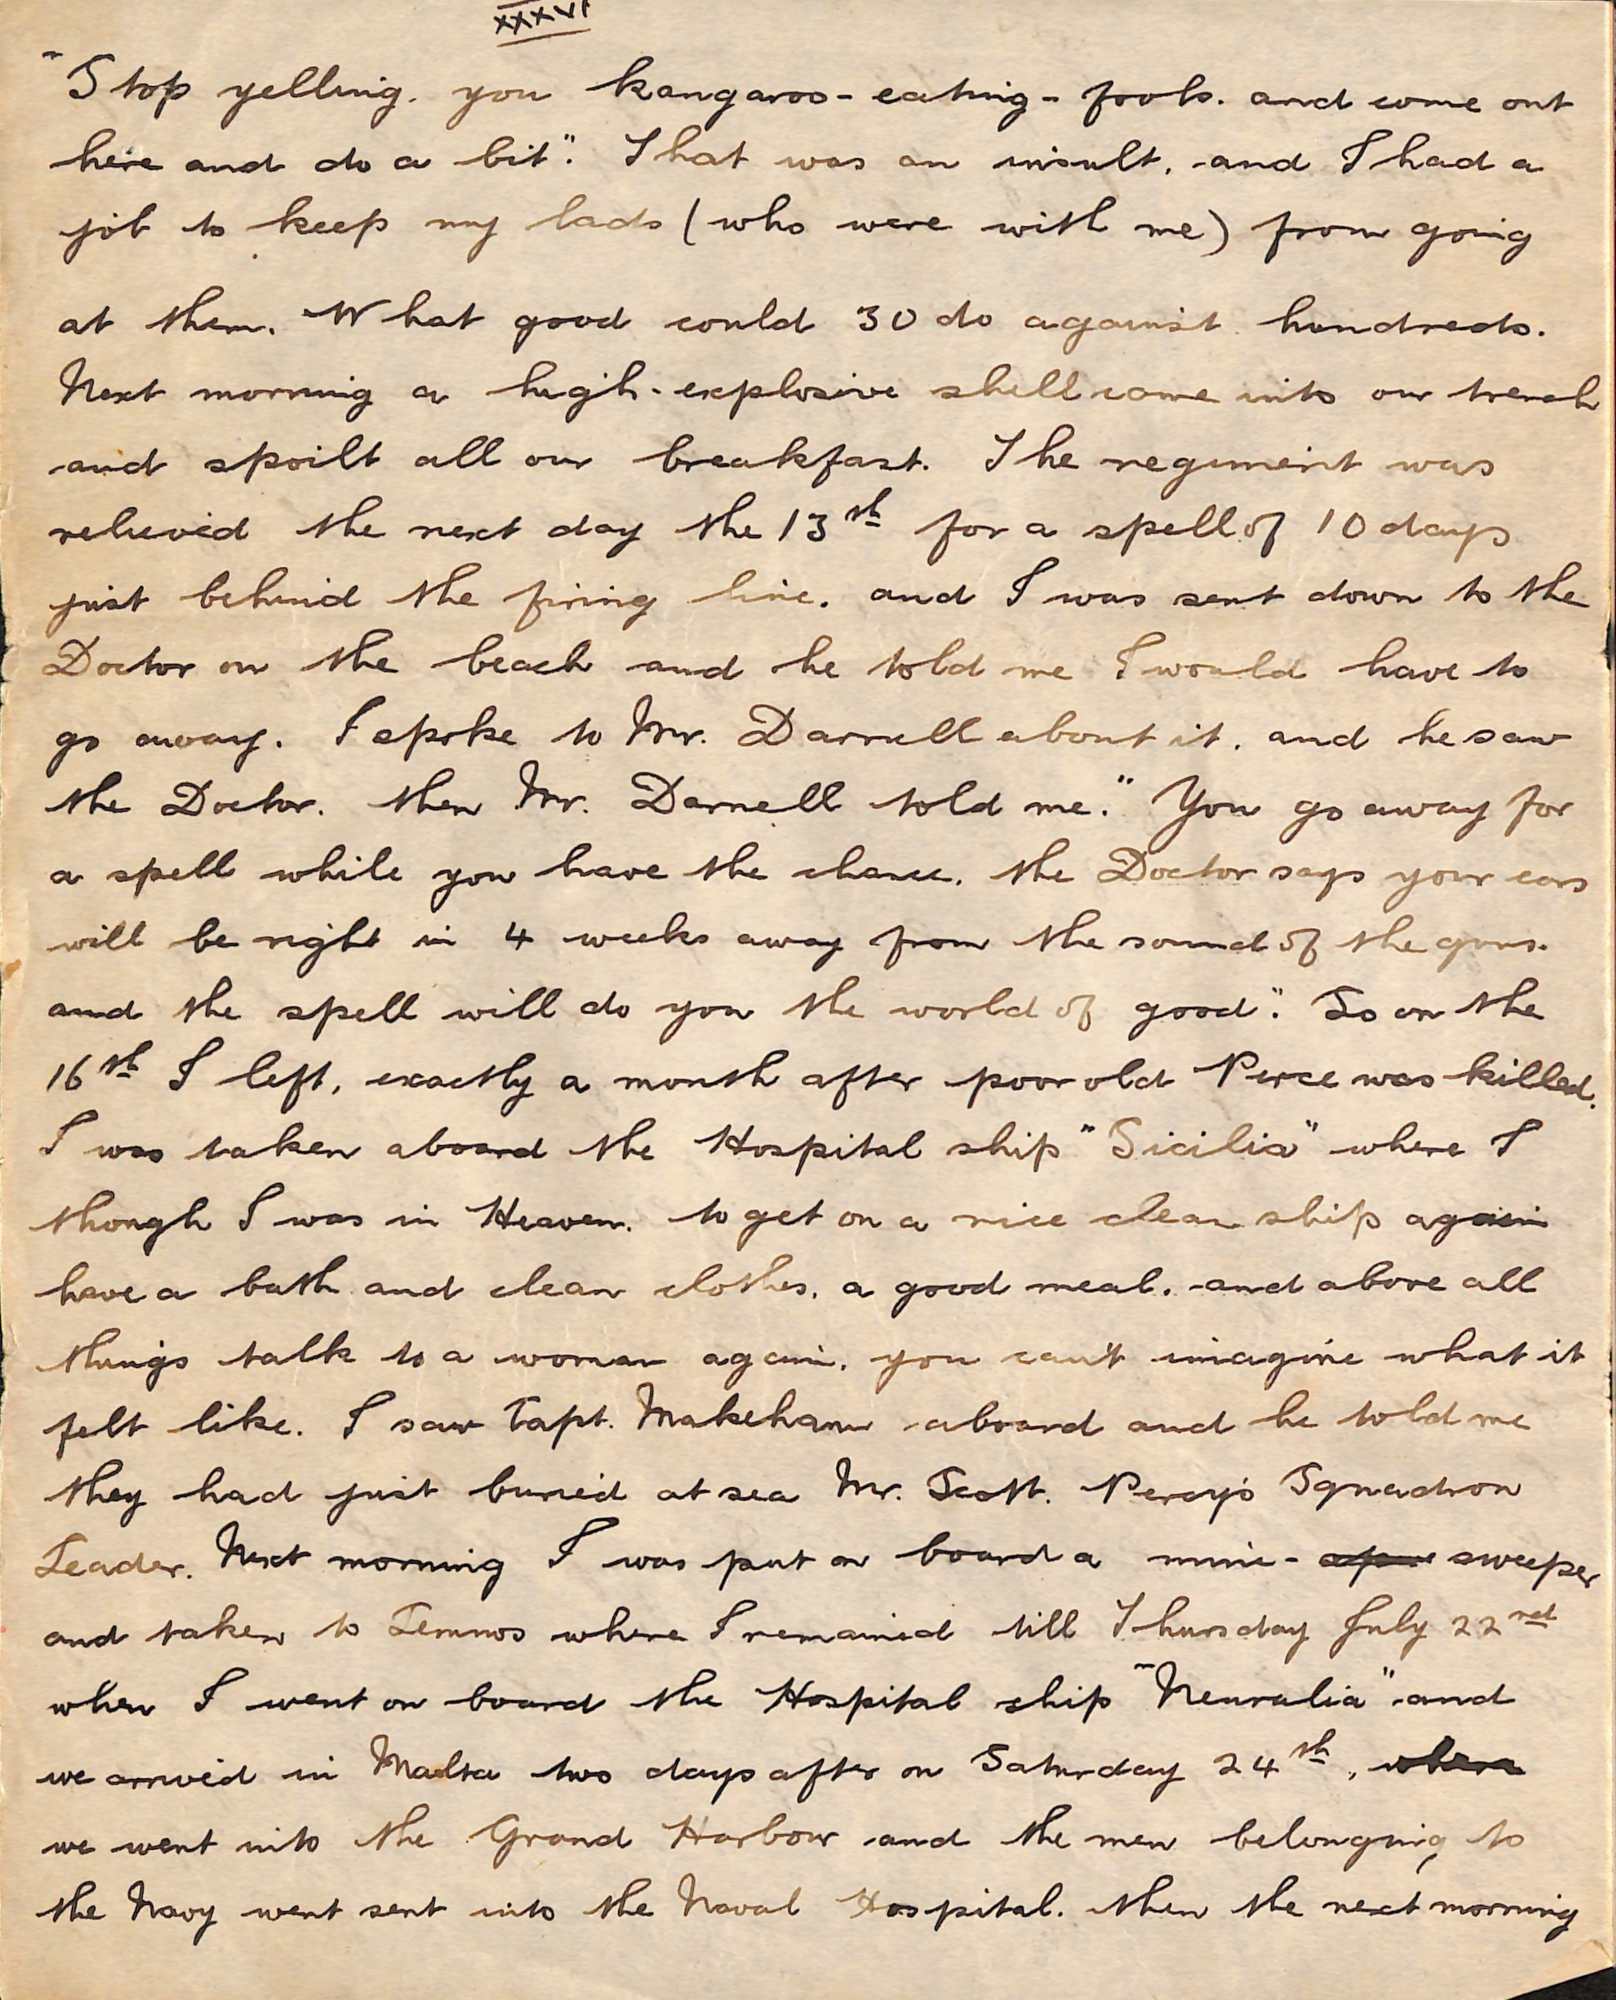 XXXVI
"Stop yelling. you kangaroo-eating-fools. and come out
here and do a bit". That was an insult, and I had a
job to keep my lads (who were with me) from going
at them. What good could 30 do against hundreds.
Next morning a high-explosive shell came into our trench
and spoilt all our breakfast. The regiment was
relieved the next day the 13th for a spell of 10 days
just behind the firing line. and I was sent down to the
Doctor on the beach and he told me I would have to
go away. I spoke to Mr. Darnell about it. and he saw
the Doctor. then Mr. Darnell told me." You go away for
a spell while you have the chance. the Doctor says your ears
will be right in 4 weeks away from the sound of the guns.
and the spell will do you the world of good". So on the
16th I left, exactly a month after poor old Perce was killed.
I was taken aboard the Hospital ship "Sicilia" where I
though I was in Heaven. to get on a nice clean ship again
have a bath and clean clothes. a good meal. and above all
things talk to a woman again. you can't imagine what it
felt like. I saw Capt. Makeham aboard and he told me
they had just buried at sea Mr. Scott. Percy's Squadron
Leader. Next morning I was put on board a mine- sweeper
and taken to Lemnos where I remained till Thursday July 22nd
when I went on board the Hospital ship "Neuralia" and
we arrived in Malta two days after on Saturday 24th, when
we went into the Grand Harbour and the men belonging to
the Navy went sent into the Naval Hospital. then the next morning